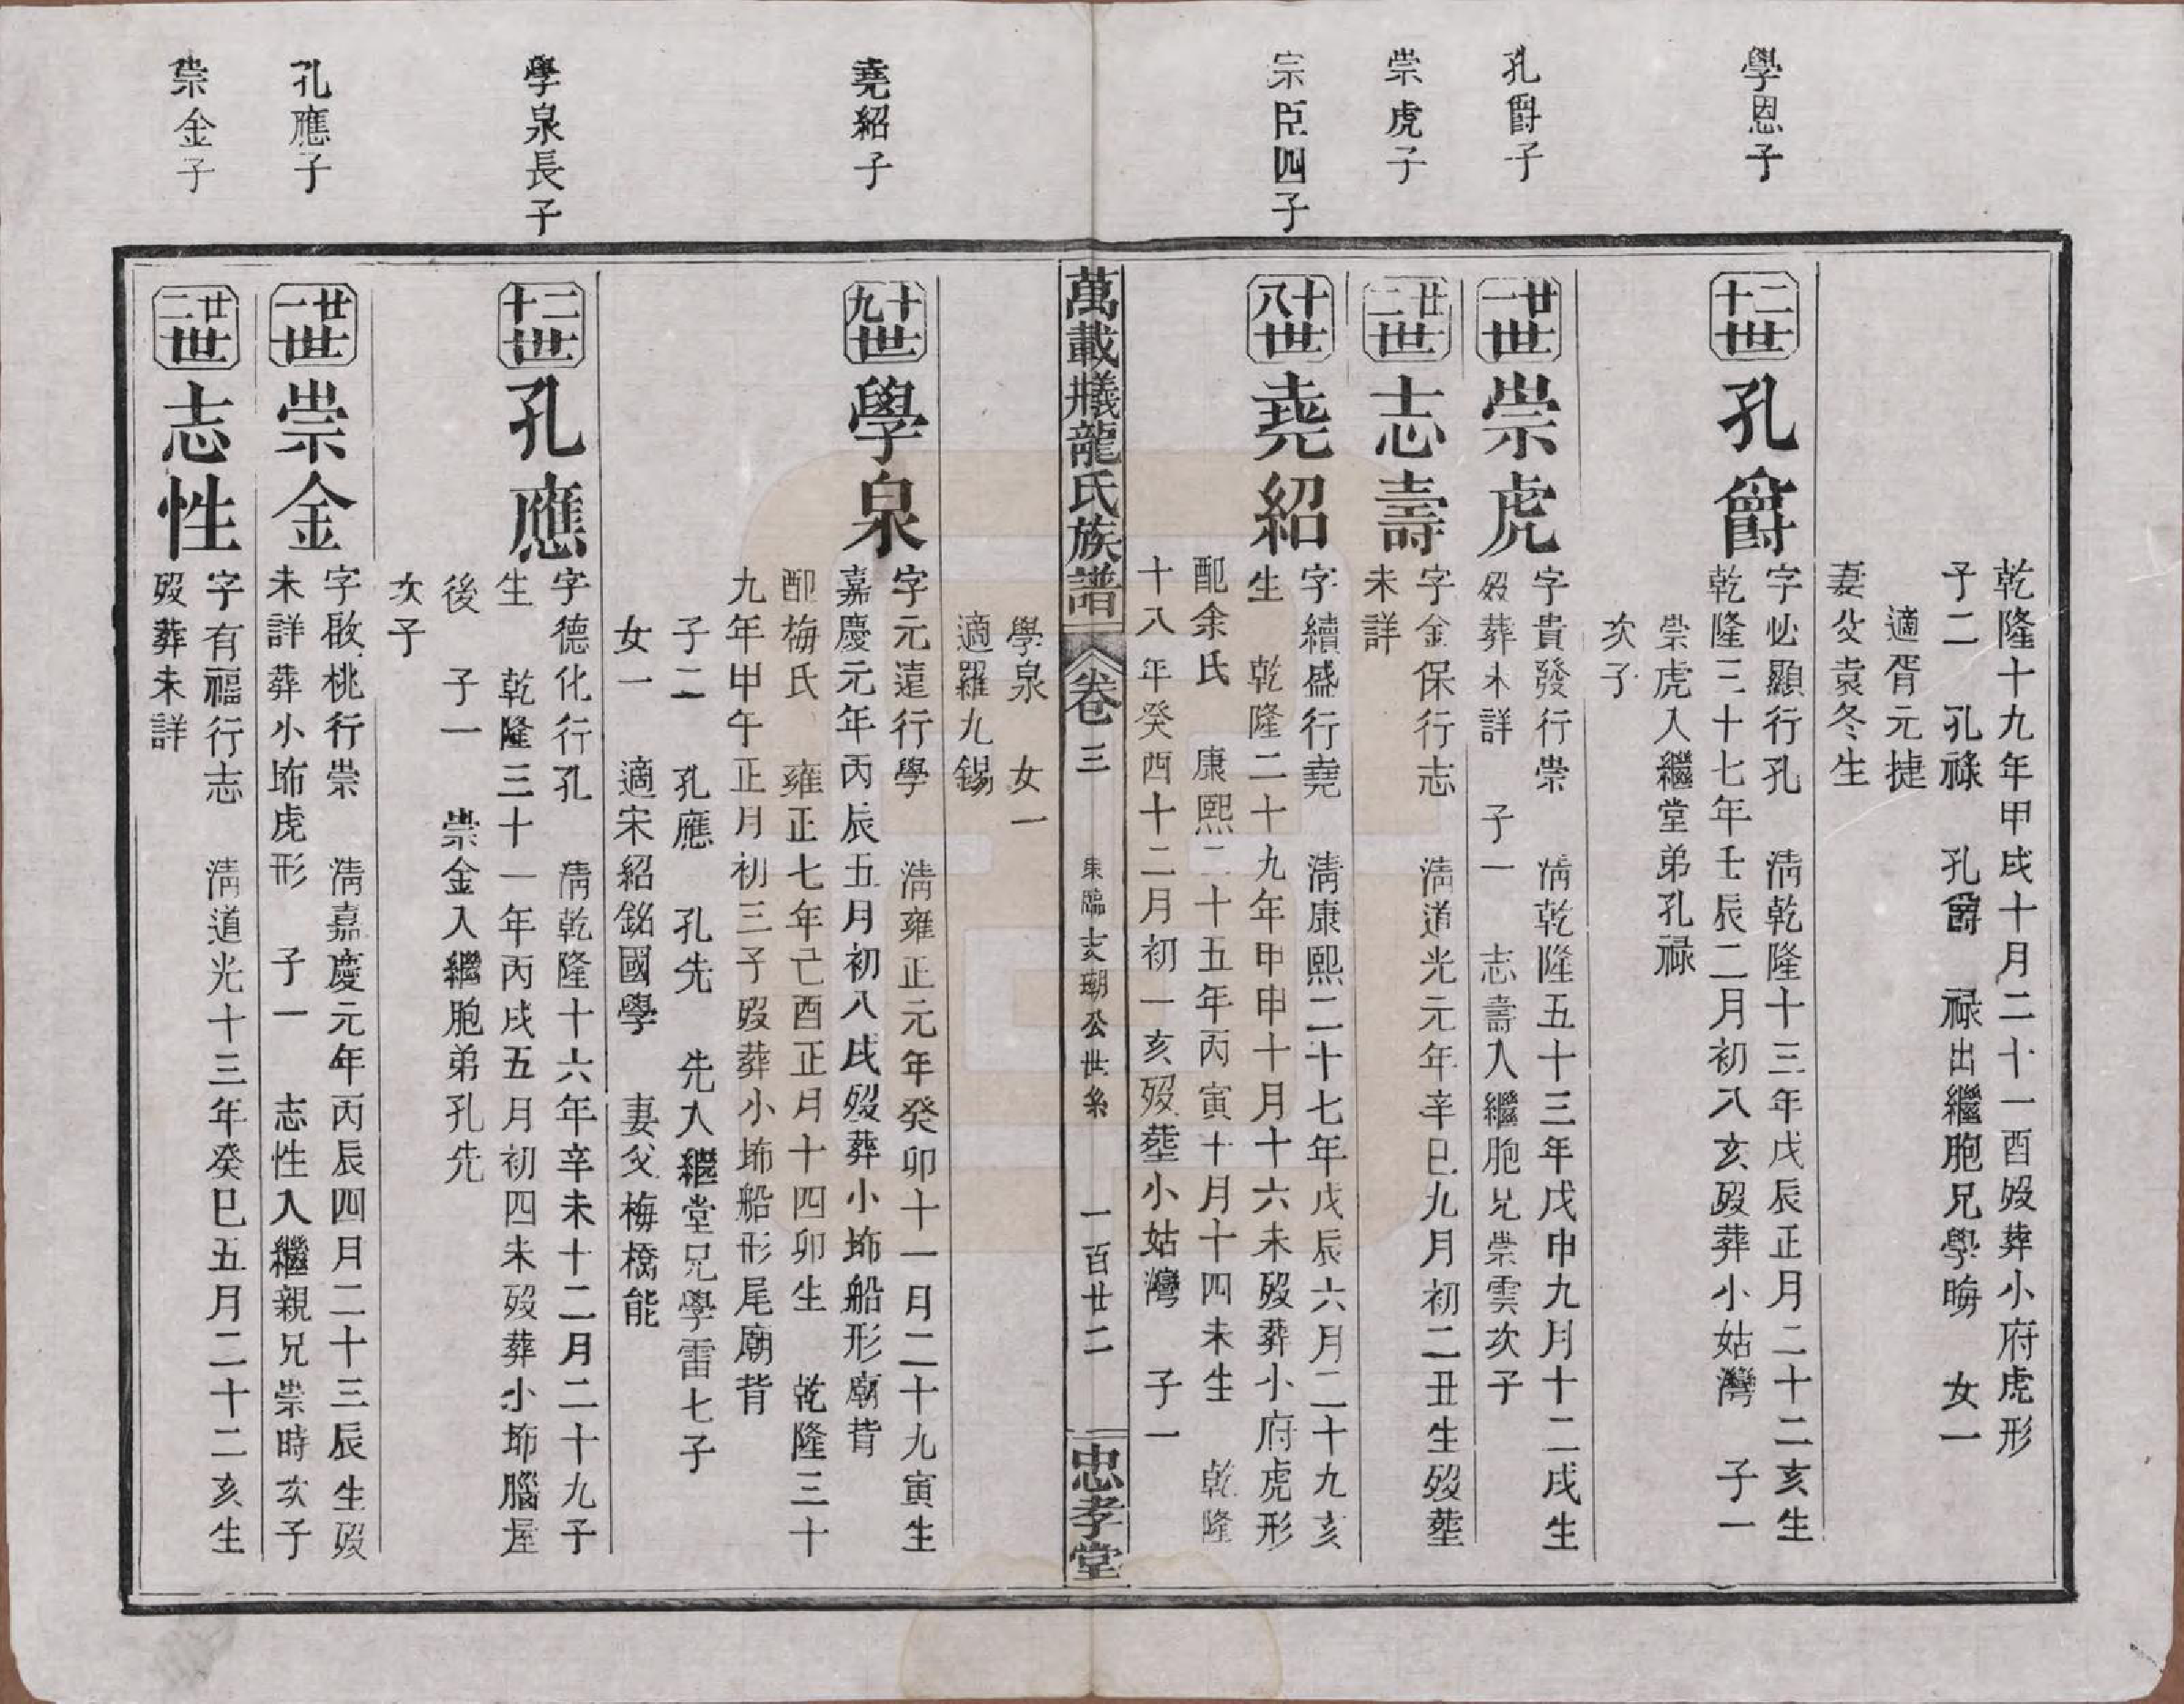 乾隆十九年甲戌十月二十一酉歿葬小府虎形
子二　孔祿　孔爵　祿出繼胞兄學晦　女一
適胥元捷
妻父袁冬生
學恩子
二十世　孔爵　字必顯行孔　清乾隆十三年戊辰正月二十二亥生
乾隆三十七年壬辰二月初八亥歿葬小姑灣　子一
崇虎入繼堂弟孔祿
次子
孔爵子
廿一世　崇虎　字貴發行崇　清乾隆五十三年戊申九月十二戌生
歿葬未詳　子一　志壽入繼胞兄崇雲次子
崇虎子
廿二世　志壽　字金保行志　清道光元年辛巳九月初二丑生歿塟
未詳
宗臣四子
十八世　堯紹　字續盛行堯　清康熙二十七年戊辰六月二十九亥
生　乾隆二十九年甲申十月十六未歿葬小府虎形
配余氏　康熙二十五年丙寅十月十四未生　乾隆
十八年癸酉十二月初一亥歿塟小姑灣　子一
萬載龍氏族譜　卷三　公世系　一百廿二　忠孝堂
學泉　女一
適羅九錫
堯紹子
十九世　學泉　字元遠行學　清雍正元年癸卯十一月二十九寅生
嘉慶元年丙辰五月初八戌歿葬小㘵船形廟背
配梅氏　雍正七年己酉正月十四卯生　乾隆三十
九年甲午正月初三子歿葬小㘵船形尾廟背
子二　孔應　孔先　先入繼堂兄學雷七子
女一　適宋紹銘國學　妻父梅橋能
學泉長子
二十世　孔應　字德化行孔　清乾隆十六年辛未十二月二十九子
生　乾隆三十一年丙戌五月初四未歿葬小㘵腦屋
後　子一　崇金入繼胞弟孔先
次子
孔應子
廿一世　崇金　字啟桃行崇　清嘉慶元年丙辰四月二十三辰生歿
未詳葬小㘵虎形　子一　志性入繼親兄崇時次子
崇金子
廿二世　志性　字有福行志　清道光十三年癸巳五月二十二亥生
歿葬未詳